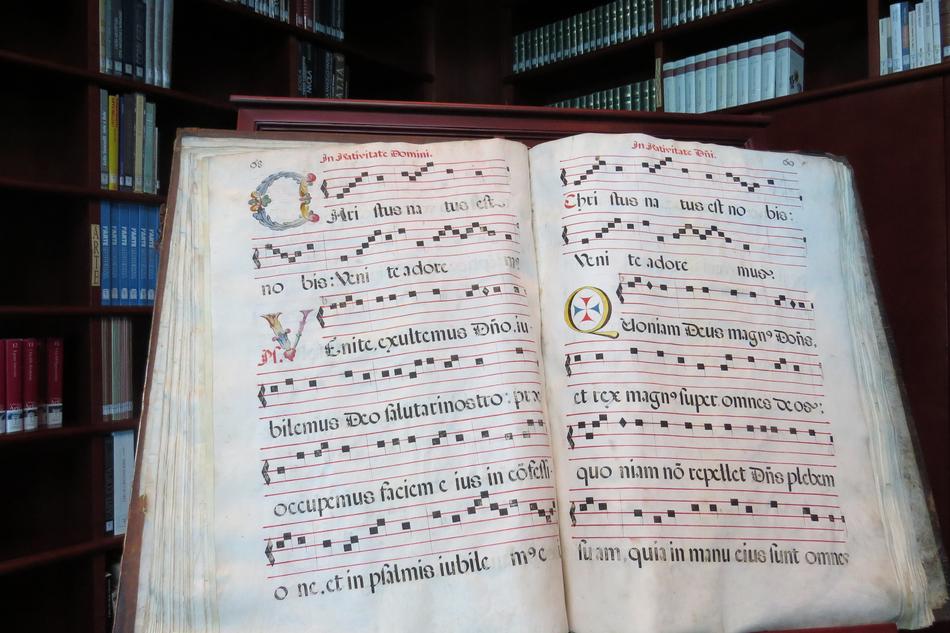 68
In Nativitate Domini.
CHri stus na tus est
no bis: Veni te adore mꝰ
Ps. VEnite, exultemus Dño, iu-
bilemus Deo salutari nostro: præ
occupemus faciem e ius in cõfessi-
o ne, et in psalmis iubile mꝰ e
In Nativitate Dñi.
69
Chri stus na tus est no bis:
Veni te adore mus.
QUoniam Deus magnꝰ Doñs,
et rex magnꝰ super omnes deos:
quo niam nõ repellet Dñs plebem
suam, quia in manu eius sunt omnes